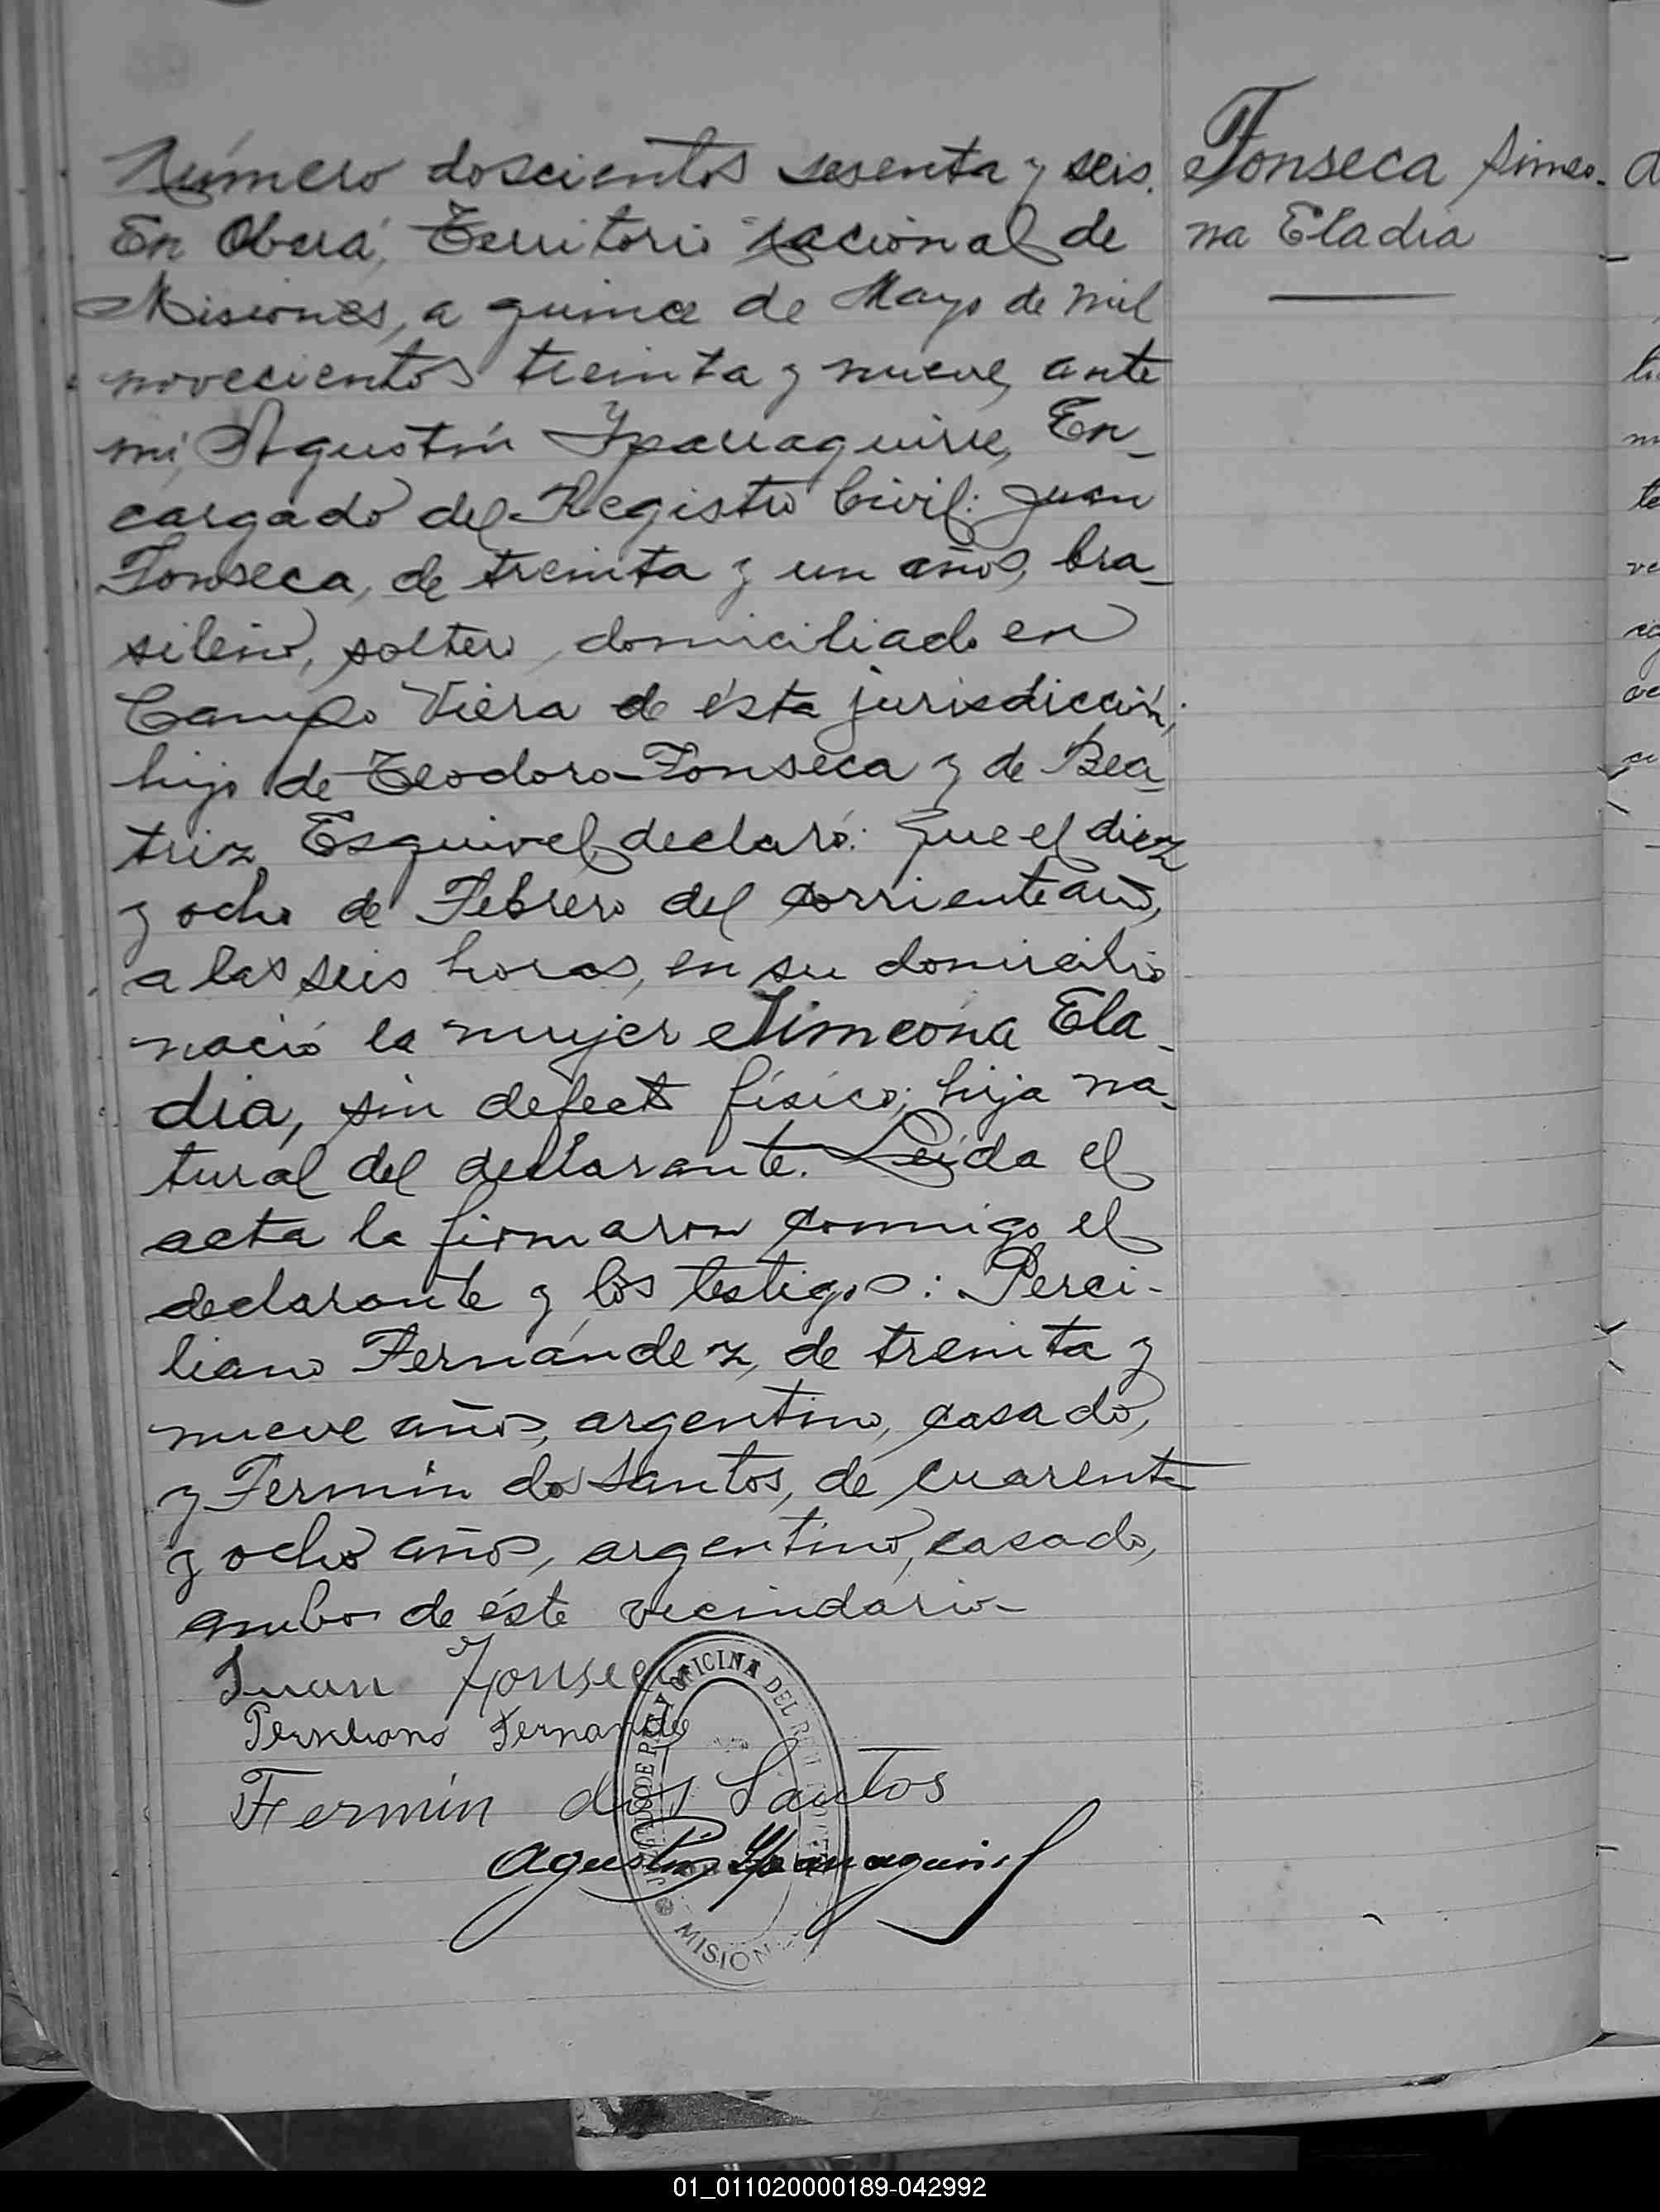 Número doscientos sesenta y seis.
En Oberá, Territorio nacional de
Misiones, a quince de Mayo de mil
novecientos treinta y nueve, ante
mí, Agustín Yparraguirre, En-
cargado del Registro Civil: Juan
Fonseca, de treinta y un años, bra-
sileño, soltero, domiciliado en
Campo Viera de ésta jurisdicción;
hijo de Teodoro Fonseca y de Bea-
triz Esquivel, declaró: Que el diez
y ocho de Febrero del corriente año,
a las seis horas, en su domicilio
nació la mujer Simeona Ela-
dia, sin defecto físico; hija na-
tural del declarante. Leída el
acta la firmaron conmigo el
declarante y los testigos: Perci-
liano Fernández, de treinta y
nueve años, argentino, casado,
y Fermín dos Santos, de cuarenta
y ocho años, argentino, casado,
ambos de éste vecindario
Juan Fonseca
Persiliano Fernande
Fermín dos Santos
Agustín Yparraguirre
JUZGADO DE PAZ Y OFICINA DEL
MISIONES
Fonseca Simeo-
na Eladia
01_011020000189-042992